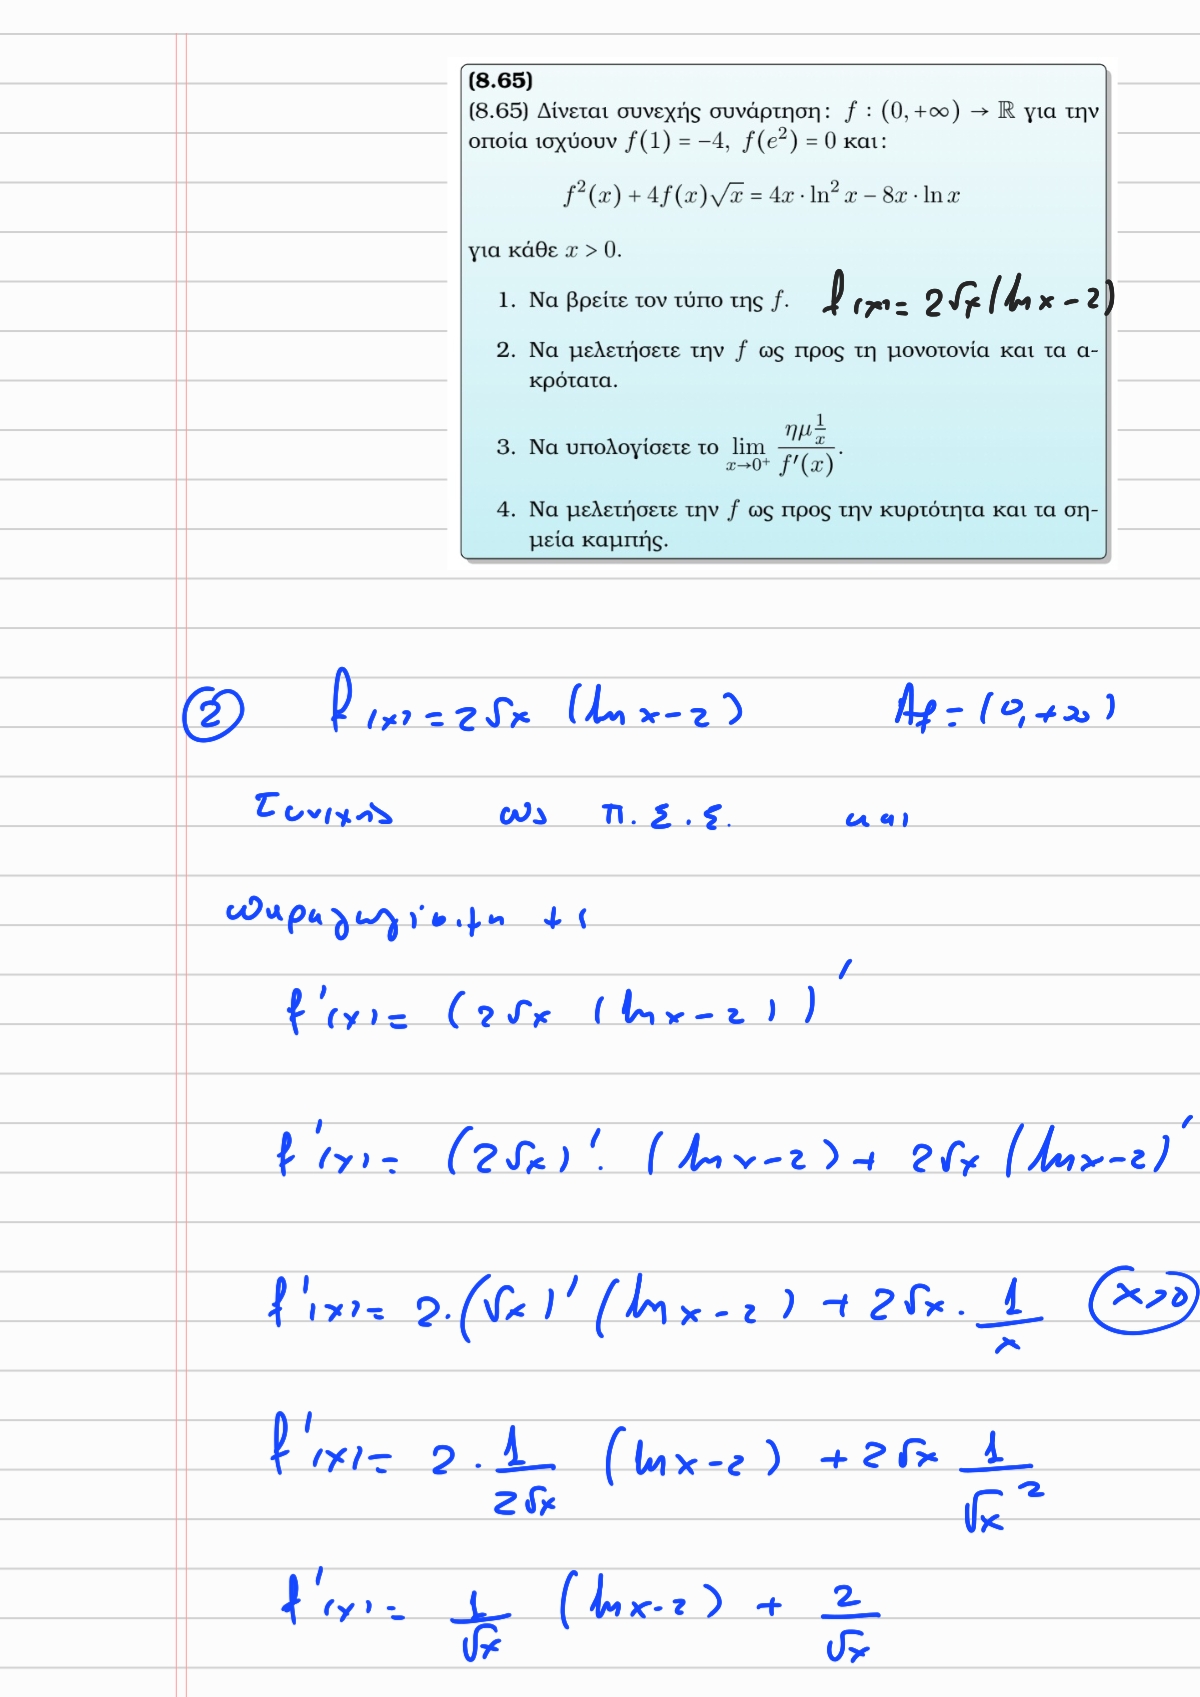 (8.65)
(8.65) Δίνεται συνεχής συνάρτηση: f : (0, +∞) → ℝ για την
οποία ισχύουν f(1) = −4, f(e²) = 0 και:
f²(x) + 4f(x)√x = 4x · ln² x − 8x · ln x
για κάθε x > 0.
1. Να βρείτε τον τύπο της f. f(x) = 2√x (ln x − 2)
2. Να μελετήσετε την f ως προς τη μονοτονία και τα α-
κρότατα.
3. Να υπολογίσετε το lim x→0⁺ ημ(1/x) / f′(x).
4. Να μελετήσετε την f ως προς την κυρτότητα και τα ση-
μεία καμπής.
② f(x) = 2√x (ln x − 2) Af = (0, +∞)
Συνεχής ως π.σ.σ. και
παραγωγίσιμη με
f′(x) = (2√x (ln x − 2))′
f′(x) = (2√x)′ · (ln x − 2) + 2√x (ln x − 2)′
f′(x) = 2 · (√x)′ (ln x − 2) + 2√x · 1/x (x>0)
f′(x) = 2 · 1/(2√x) (ln x − 2) + 2√x 1/√x²
f′(x) = 1/√x (ln x − 2) + 2/√x